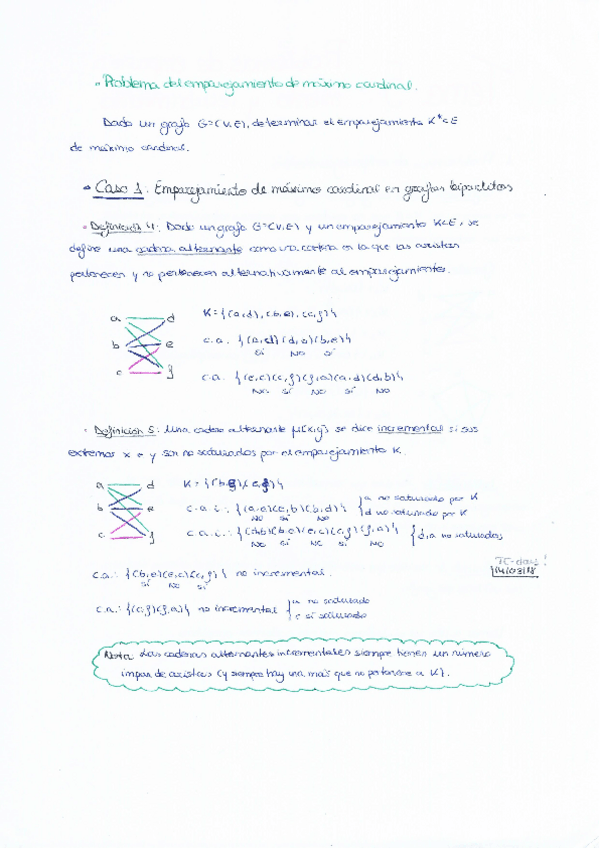 - Problema del emparejamiento de máximo cardinal.
Dado un grafo G=(V,E), determinar el emparejamiento K*⊂E
de máximo cardinal.
→ Caso 1. Emparejamiento de máximo cardinal en grafos bipartitos
- Definición 4: Dado un grafo G=(V,E) y un emparejamiento K⊂E, se
define una cadena alternante como una cadena en la que las aristas
pertenecen y no pertenecen alternativamente al emparejamiento.
a d
b e
c f
K = {(a,d), (b,e), (c,f)}
c.a. {(a,d)(d,b)(b,e)}
SÍ NO SÍ
c.a. {(e,c)(c,f)(f,a)(a,d)(d,b)}
NO SÍ NO SÍ NO
- Definición 5: Una cadena alternante μ[x,y] se dice incremental si sus
extremos x e y son no saturados por el emparejamiento K.
a d
b e
c f
K = {(b,e)(c,f)}
c.a.i.: {(a,e)(e,b)(b,d)} { a no saturado por K
NO SÍ NO d no saturado por K
c.a.i.: {(d,b)(b,e)(e,c)(c,f)(f,a)} { d,a no saturados
NO SÍ NO SÍ NO
c.a.: {(b,e)(e,c)(c,f)} no incremental.
SÍ NO SÍ
c.a.: {(c,f)(f,a)} no incremental { a no saturado
c sí saturado
14/03/18
Nota: Las cadenas alternantes incrementales siempre tienen un número
impar de aristas (y siempre hay una más que no pertenece a K).